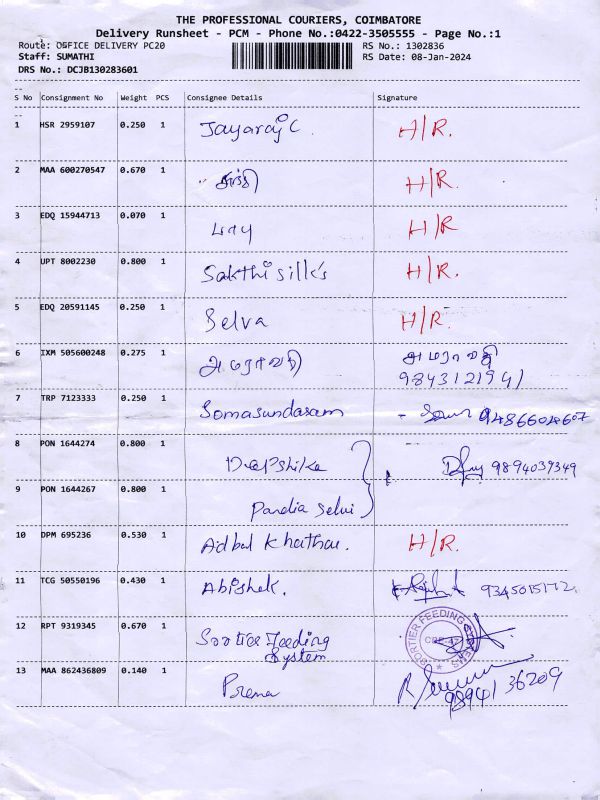 THE PROFESSIONAL COURIERS, COIMBATORE
Delivery Runsheet - PCM - Phone No.:0422-3505555 - Page No.:1
Route: OFFICE DELIVERY PC20 RS No.: 1302836
Staff: SUMATHI RS Date: 08-Jan-2024
DRS No.: DCJB130283601
S No Consignment No Weight PCS Consignee Details Signature
1 HSR 2959107 0.250 1 Jayaraj C. H/R.
2 MAA 600270547 0.670 1 H/R.
3 EDQ 15944713 0.070 1 H/R
4 UPT 8002230 0.800 1 Sakthi silk's H/R.
5 EDQ 20591145 0.250 1 Selva H/R.
6 IXM 505600248 0.275 1 அமராவதி அமராவதி
9843121941
7 TRP 7123333 0.250 1 Somasundaram
8 PON 1644274 0.800 1 Deepshika 9894039349
9 PON 1644267 0.800 1 Pandia Selvi
10 DPM 695236 0.530 1 Adbul Khathar. H/R.
11 TCG 50550196 0.430 1 Abishek.
12 RPT 9319345 0.670 1 Sortier Feeding SORTIER FEEDING SYSTEMS
System
13 MAA 862436809 0.140 1 Prema
9894136209